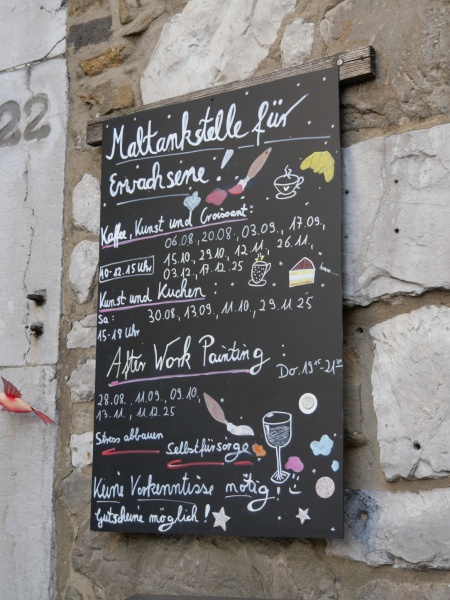 22
Maltankstelle für
Erwachsene!
Kaffee, Kunst und Croissant:
06.08., 20.08., 03.09., 17.09.,
10-12.15 Uhr
15.10., 29.10., 12.11., 26.11.,
03.12., 17.12.25
Kunst und Kuchen:
Sa: 30.08., 13.09., 11.10., 29.11.25
15-18 Uhr
After Work Painting:
Do. 19¹⁵-21³⁰
28.08., 11.09., 09.10.,
13.11., 11.12.25
Stress abbauen
Selbstfürsorge
Keine Vorkenntisse nötig!
Gutscheine möglich!